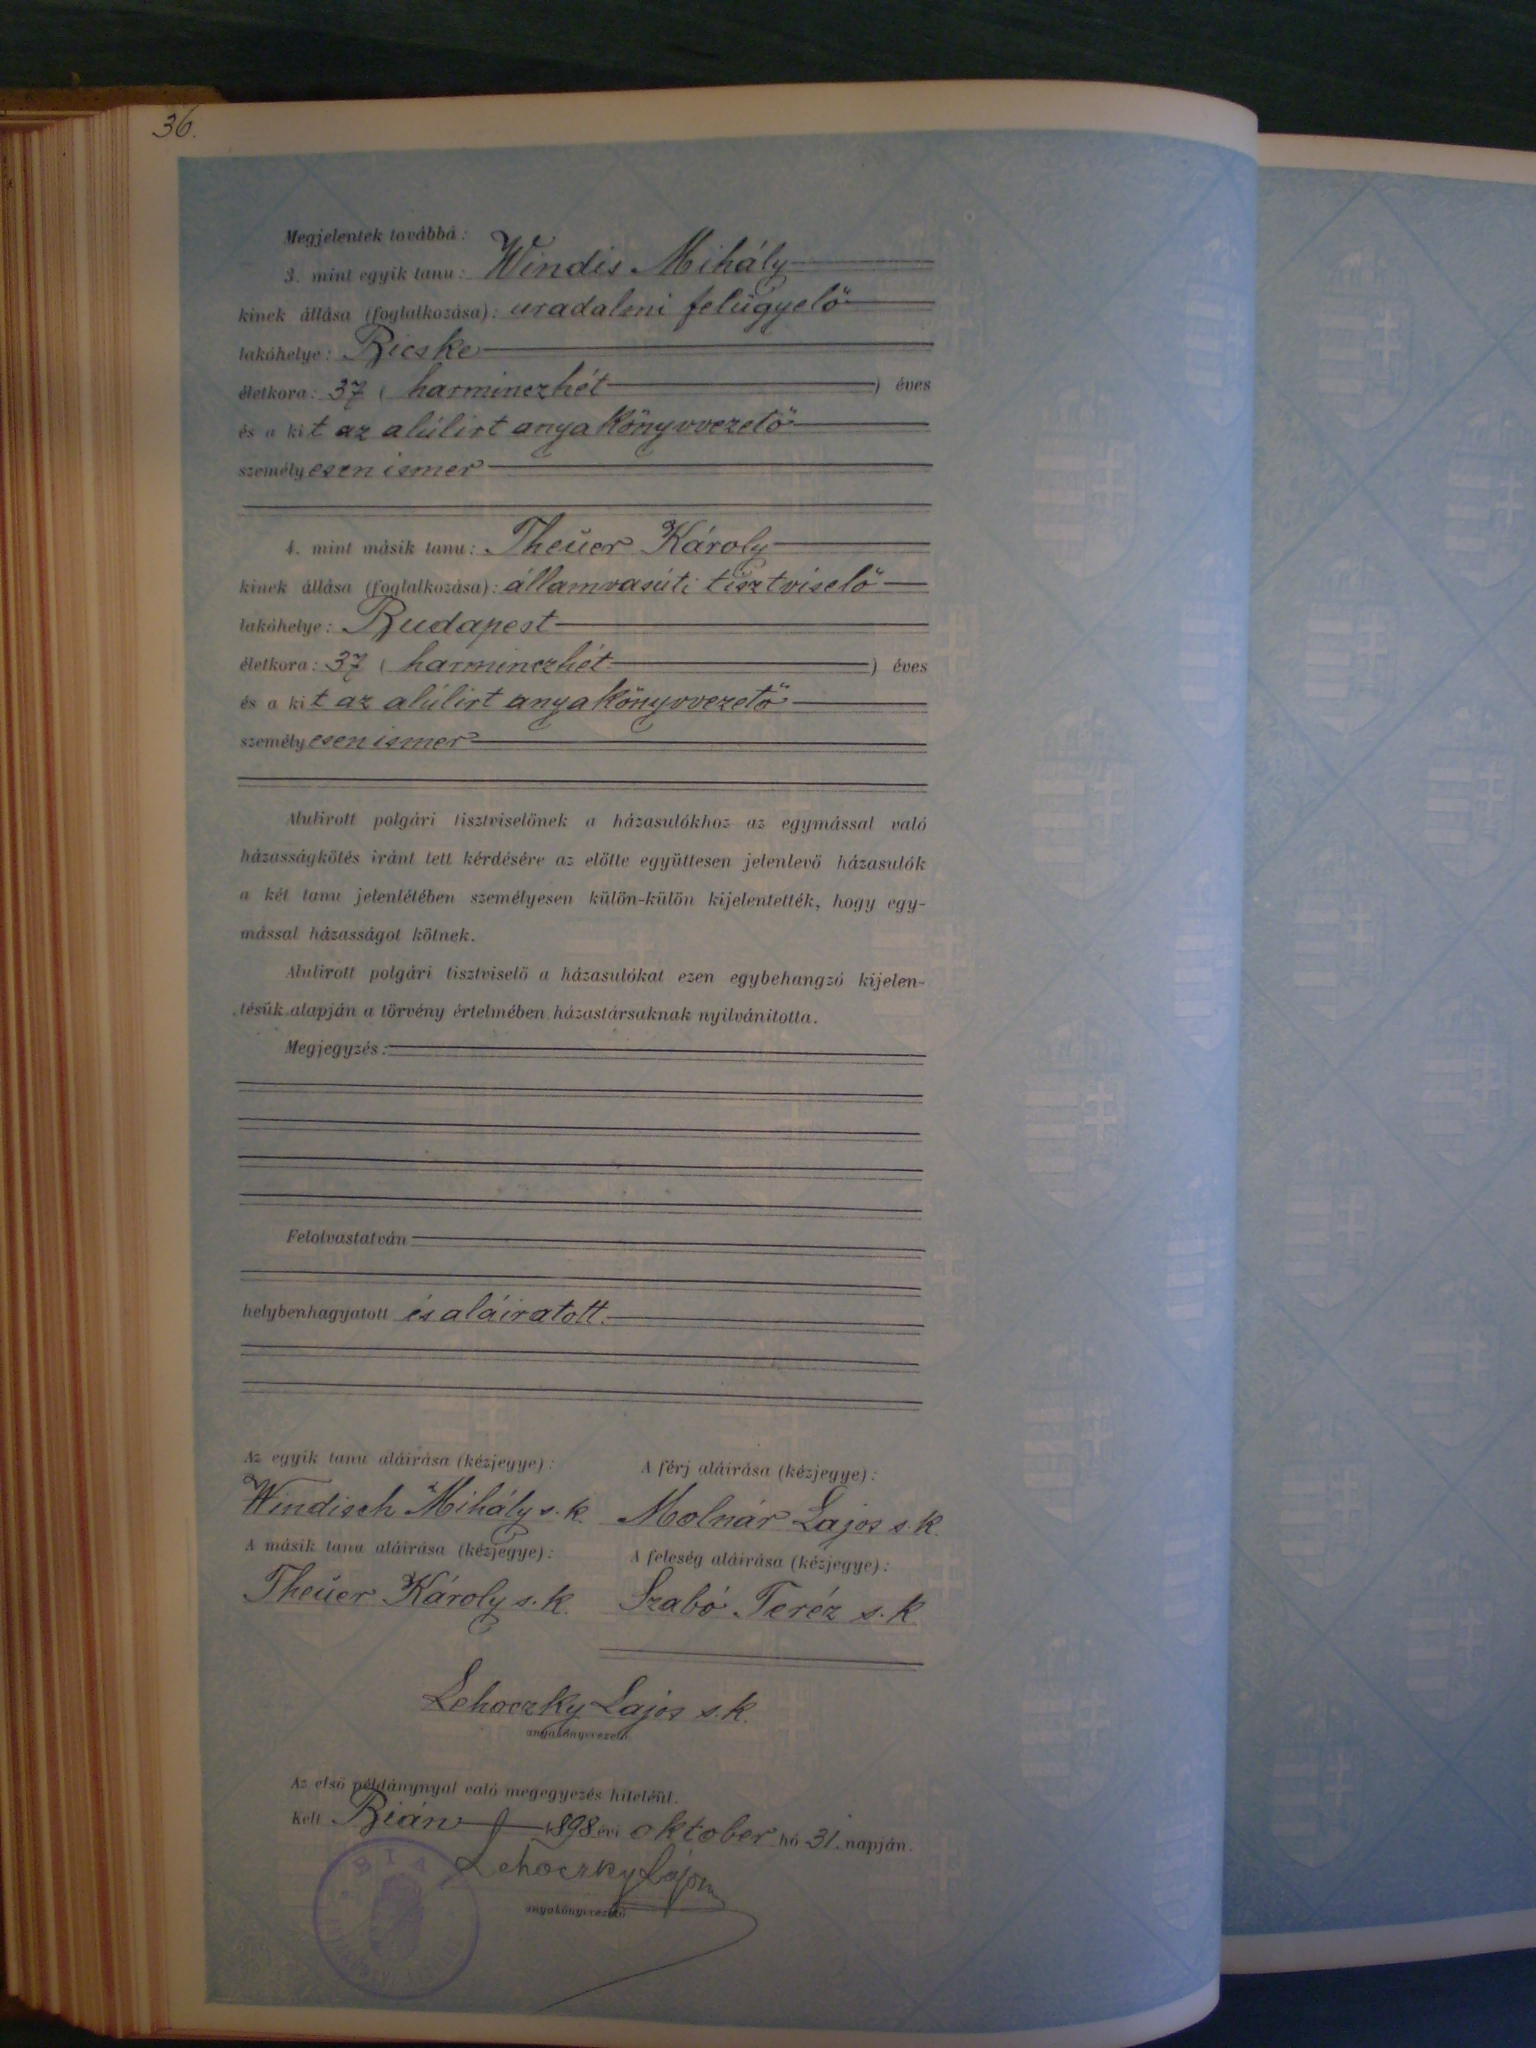 36.
Megjelentek továbbá:
3. mint egyik tanu: Windis Mihály
kinek állása (foglalkozása): uradalmi felügyelő
lakóhelye: Bicske
életkora: 37 ( harminczhét ) éves
és a kit az alúlirt anyakönyvvezető
személyesen ismer
4. mint másik tanu: Theüer Károly
kinek állása (foglalkozása): államvasúti tisztviselő
lakóhelye: Budapest
életkora: 37 ( harminczhét ) éves
és a kit az alúlirt anyakönyvvezető
személyesen ismer
Alulirott polgári tisztviselőnek a házasulókhoz az egymással való
házasságkötés iránt tett kérdésére az előtte együttesen jelenlevő házasulók
a két tanu jelenlétében személyesen külön-külön kijelentették, hogy egy-
mással házasságot kötnek.
Alulirott polgári tisztviselő a házasulókat ezen egybehangzó kijelen-
tésük alapján a törvény értelmében házastársaknak nyilvánitotta.
Megjegyzés:
Felolvastatván
helybenhagyatott és aláiratott.
Az egyik tanu aláirása (kézjegye): A férj aláirása (kézjegye):
Windisch Mihály s. k. Molnár Lajos s. k.
A másik tanu aláirása (kézjegye): A feleség aláirása (kézjegye):
Theüer Károly s. k. Szabó Teréz s. k.
Lehoczky Lajos s. k.
anyakönyvvezető
Az első példánynyal való megegyezés hiteléül.
Kelt Bián 1898 évi oktober hó 31. napján.
Lehoczky Lajos
anyakönyvvezető
BIA